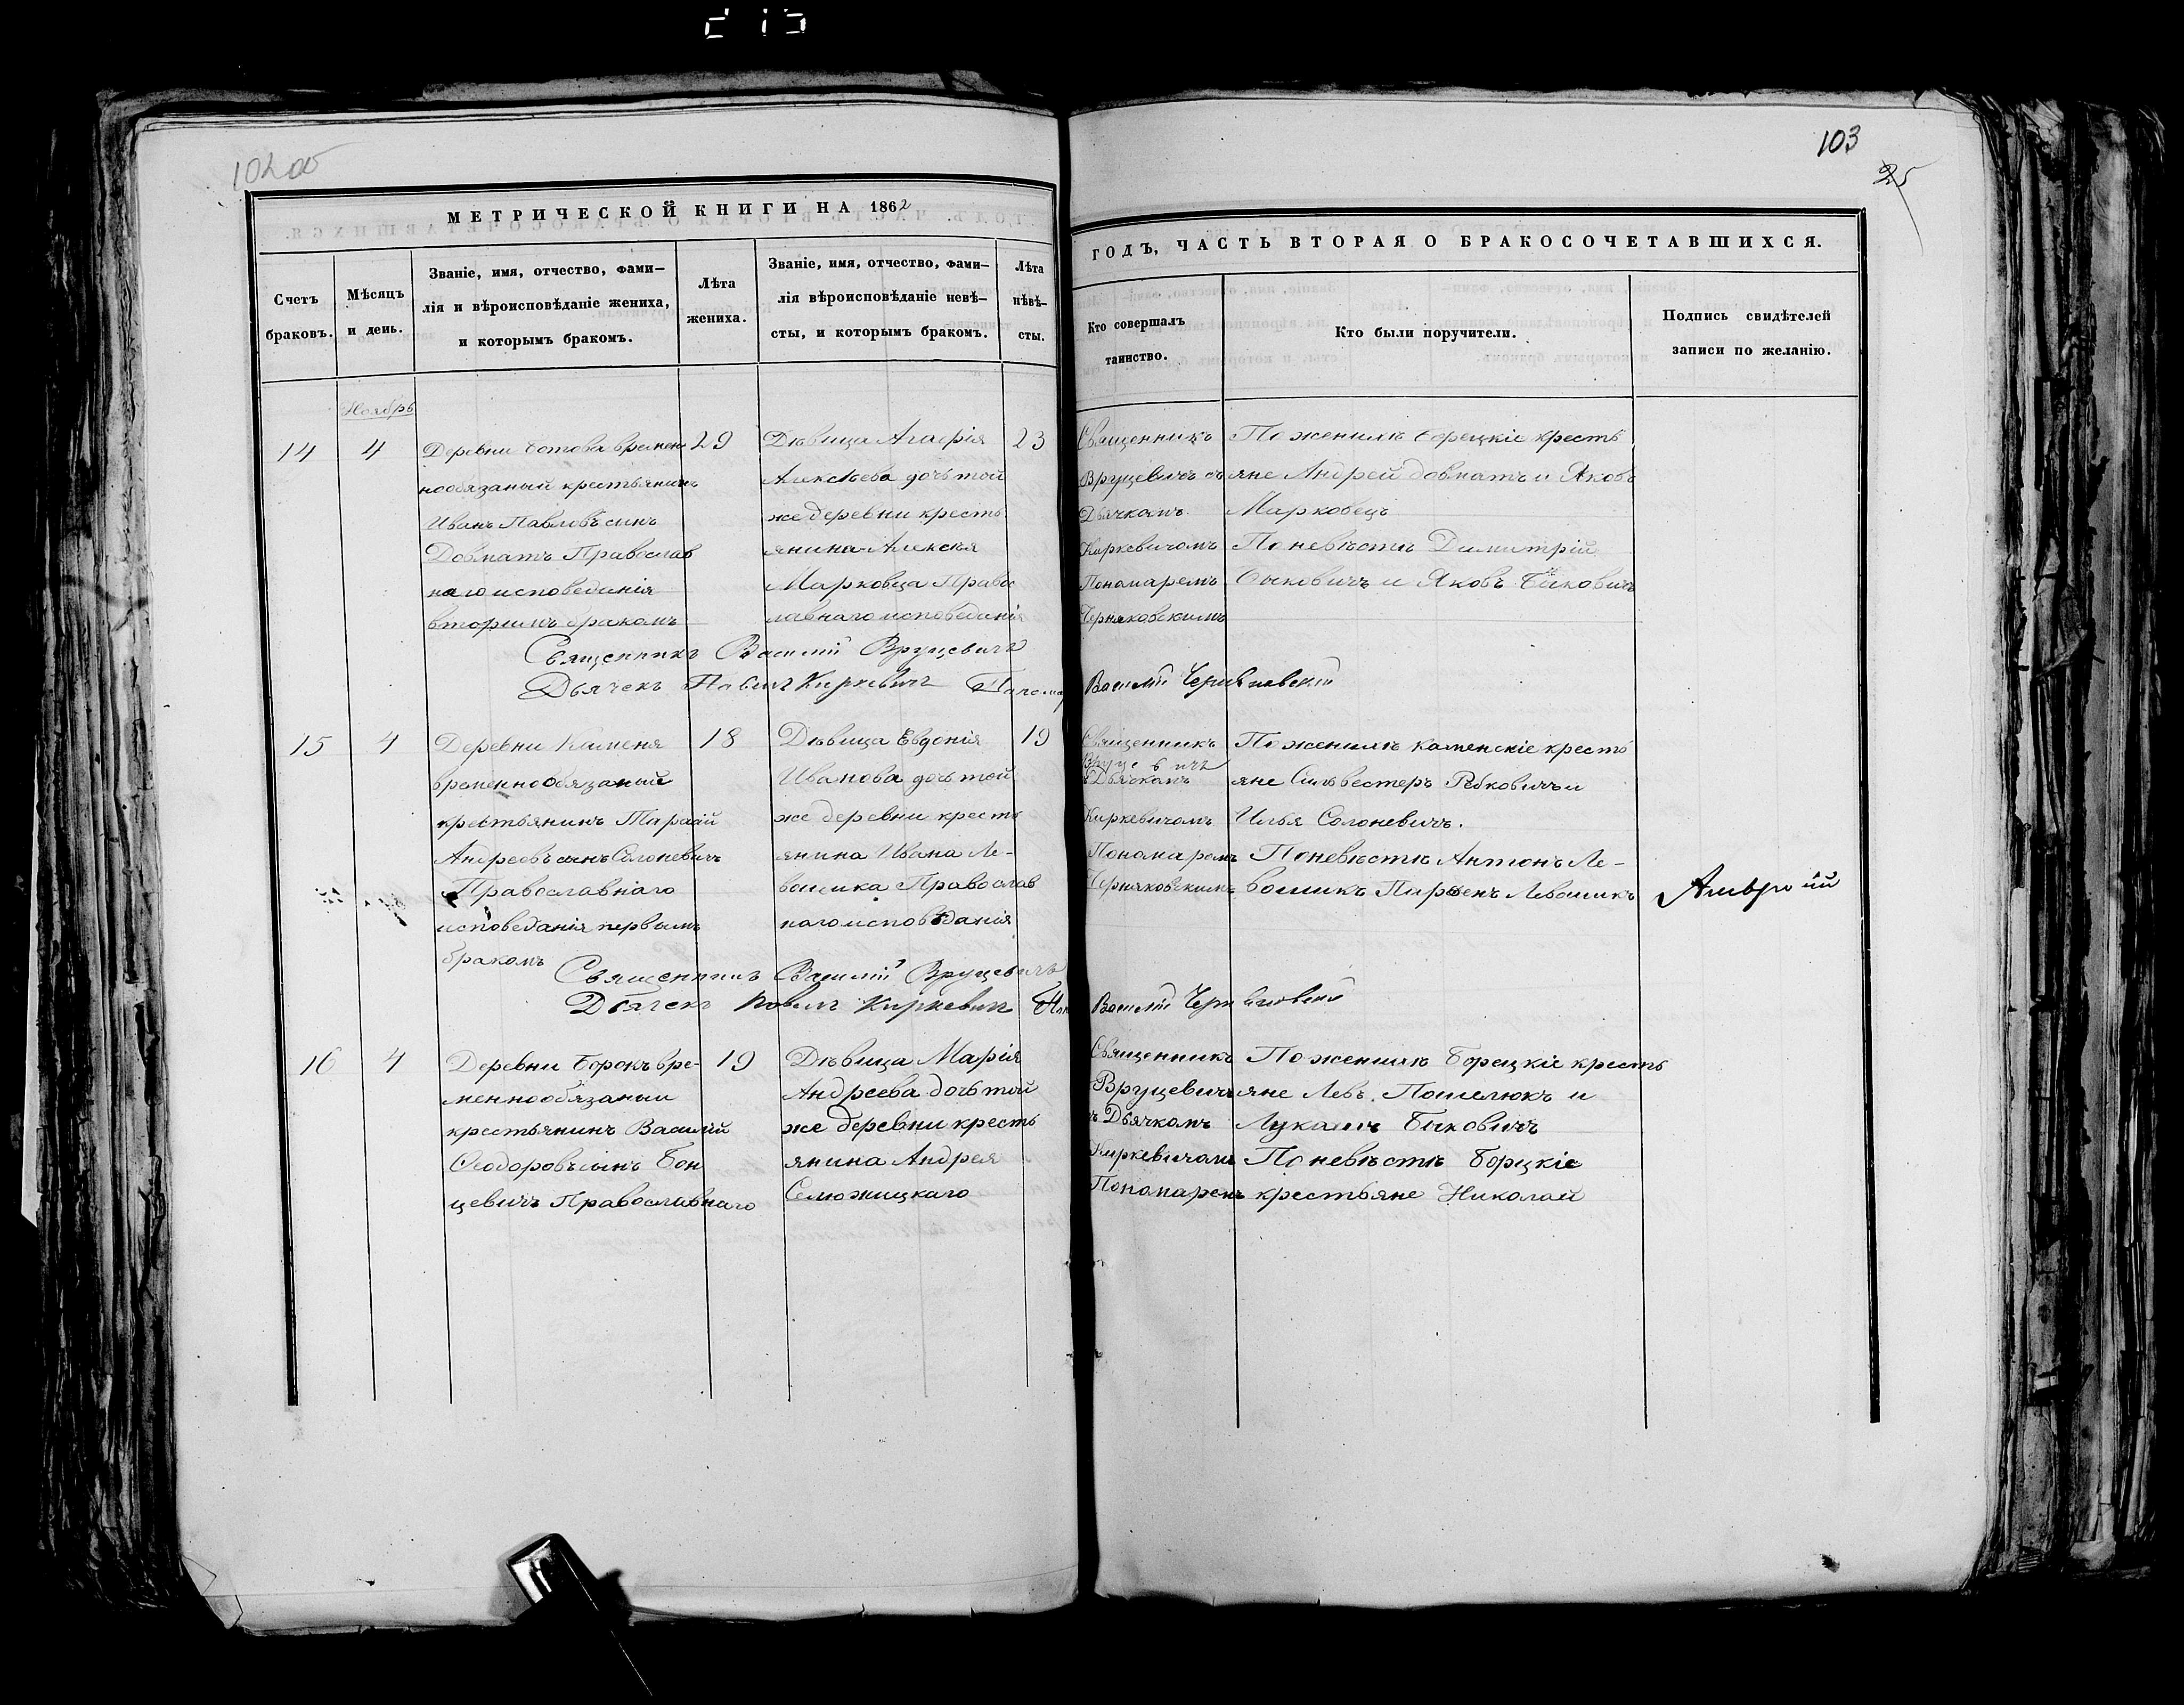 102 об
103
25
МЕТРИЧЕСКОЙ КНИГИ НА 1862
ГОДЪ, ЧАСТЬ ВТОРАЯ О БРАКОСОЧЕТАВШИХСЯ.
Счетъ
браковъ.
Мѣсяцъ
и день.
Званіе, имя, отчество, фами–
лія и вѣроисповѣданіе жениха,
и которымъ бракомъ.
Лѣта
жениха.
Званіе, имя, отчество, фами–
лія вѣроисповѣданіе невѣ–
сты, и которымъ бракомъ.
Лѣта
нѣвѣ–
сты.
Кто совершалъ
таинство.
Кто были поручители.
Подпись свидѣтелей
записи по желанію.
Ноябрь
14
4
Деревни времен
нообязаный крестьянинъ
Иванъ Павловъ синъ
Довнатъ Православ
наго исповеданія
вторимъ бракомъ
29
Дѣвица Агафія
Алексѣева дочь той
же деревни кресть
янина Алексѣя
Марковца Правос
лавнаго исповеданія
23
Священникъ
Вруцевичъ съ
Дьячкомъ
Киркевичомъ
Пономаремъ
Черняковскимъ
По женихѣ борецкіе кресть
яне Андрей довнатъ и Яковъ
Марковецъ
По невѣстѣ Димитрій
Быковичъ и Яковъ Быковичъ
Священникъ Василій Вруцевичъ
Дьячекъ Павелъ Киркевичъ Понома
Василій Черняковскій
15
4
Деревни Каменя
временнообязаный
крестьянинъ Тарасій
Андреевъ синъ Солоневичъ
Православнаго
исповеданія первымъ
бракомъ
18
Дѣвица Евдокія
Иванова дочь той
же деревни кресть
янина Ивана Ле-
вошика Православ
наго исповѣданія
19
Священникъ
Вруцевичъ
Дьячкомъ
Киркевичомъ
Пономаромъ
Черняковскимъ
По женихѣ каменскіе кресть
яне Сильвестеръ Рабковичъ и
Илья Солоневичъ.
По невѣстѣ Антонъ Ле-
вошикъ Парѳенъ Левошикъ
Священникъ Василій Вруцевичъ
Дьячекъ Павелъ Киркевичъ
Василій Черняковскій
16
4
Деревни Борокъ вре-
меннообязаный
крестьянинъ Василій
Ѳеодоровъ сынъ Бон
цевичъ Православнаго
19
Дѣвица Марія
Андреева дочь той
же деревни кресть
янина Андрея
Селюжицкаго
Священникъ
Вруцевичъ
съ Дьячкомъ
Киркевичомъ
Пономаремъ
По женихѣ Борецкіе кресть
яне Левъ Пошелюкъ и
Лукашъ Быковичъ
По невѣстѣ Борцкіе
крестьяне Николай